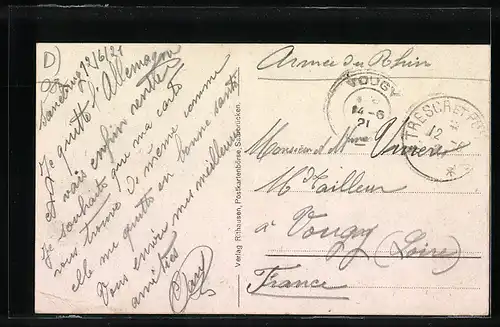 D)
12/6/21
Je quitte l'Allemagne
et vais enfin rentré
Je souhaite que ma carte
vous trouve de même comme
elle me quitte en bonne santé
Vous envoie mes meilleures
amitiés
Verlag Rithausen, Postkartenbörse, Saarbrücken.
Armée du Rhin
VOUGY
14-6
21
TRESOR ET POSTES
12
Monsieur et Mme
Md Tailleur
à Vougy (Loire)
France